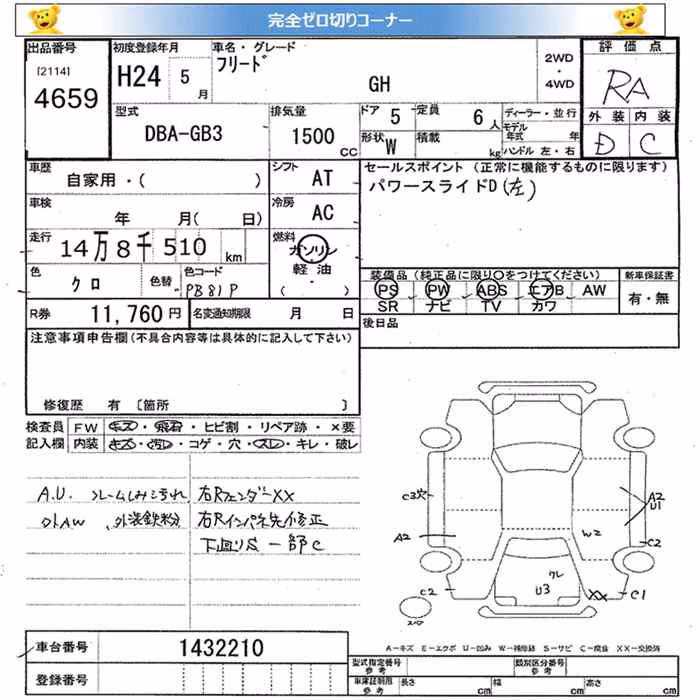 完全ゼロ切りコーナー
出品番号
[2114]
4659
初度登録年月
H24 5
月
車名・グレード
フリード
GH
2WD
・
4WD
評価点
RA
外装 内装
D C
型式
DBA-GB3
排気量
1500
CC
ドア 5 定員 6 人
形状 W 積載 kg
ディーラー・並行
モデル年式 年
ハンドル 左・右
車歴
自家用・( )
シフト
AT
セールスポイント (正常に機能するものに限ります)
パワースライドD(左)
車検
年 月( 日)
冷房
AC
走行
14万8千510 km
燃料
ガソリン
・
軽油
( )
色
クロ
色替
色コード
PB81P
装備品(純正品に限り○をつけてください)
PS PW ABS エアB AW
SR ナビ TV カワ
新車保証書
有・無
R券 11,760円
名変通知期限 月 日
後日品
注意事項申告欄(不具合内容等は具体的に記入して下さい)
修復歴 有 〔箇所 〕
検査員
記入欄
FW キズ・飛石・ヒビ割・リペア跡・×要
内装 キズ・汚レ・コゲ・穴・スレ・キレ・破レ
A.U. シートしみ汚れ
外AW、外装鉄粉
右RフェンダーXX
右Rインパネ先修正
下回りS 一部C
C3穴
A2
U1
A2
W2
C2
クレ
C2
U3
XX
C1
A=キズ E=エクボ U=凹み W=補修跡 S=サビ C=腐食 XX=交換済
車台番号
1432210
登録番号
型式指定番号
参考
類別区分番号
参考
車庫証明用
参考
長さ cm 幅 cm 高さ cm